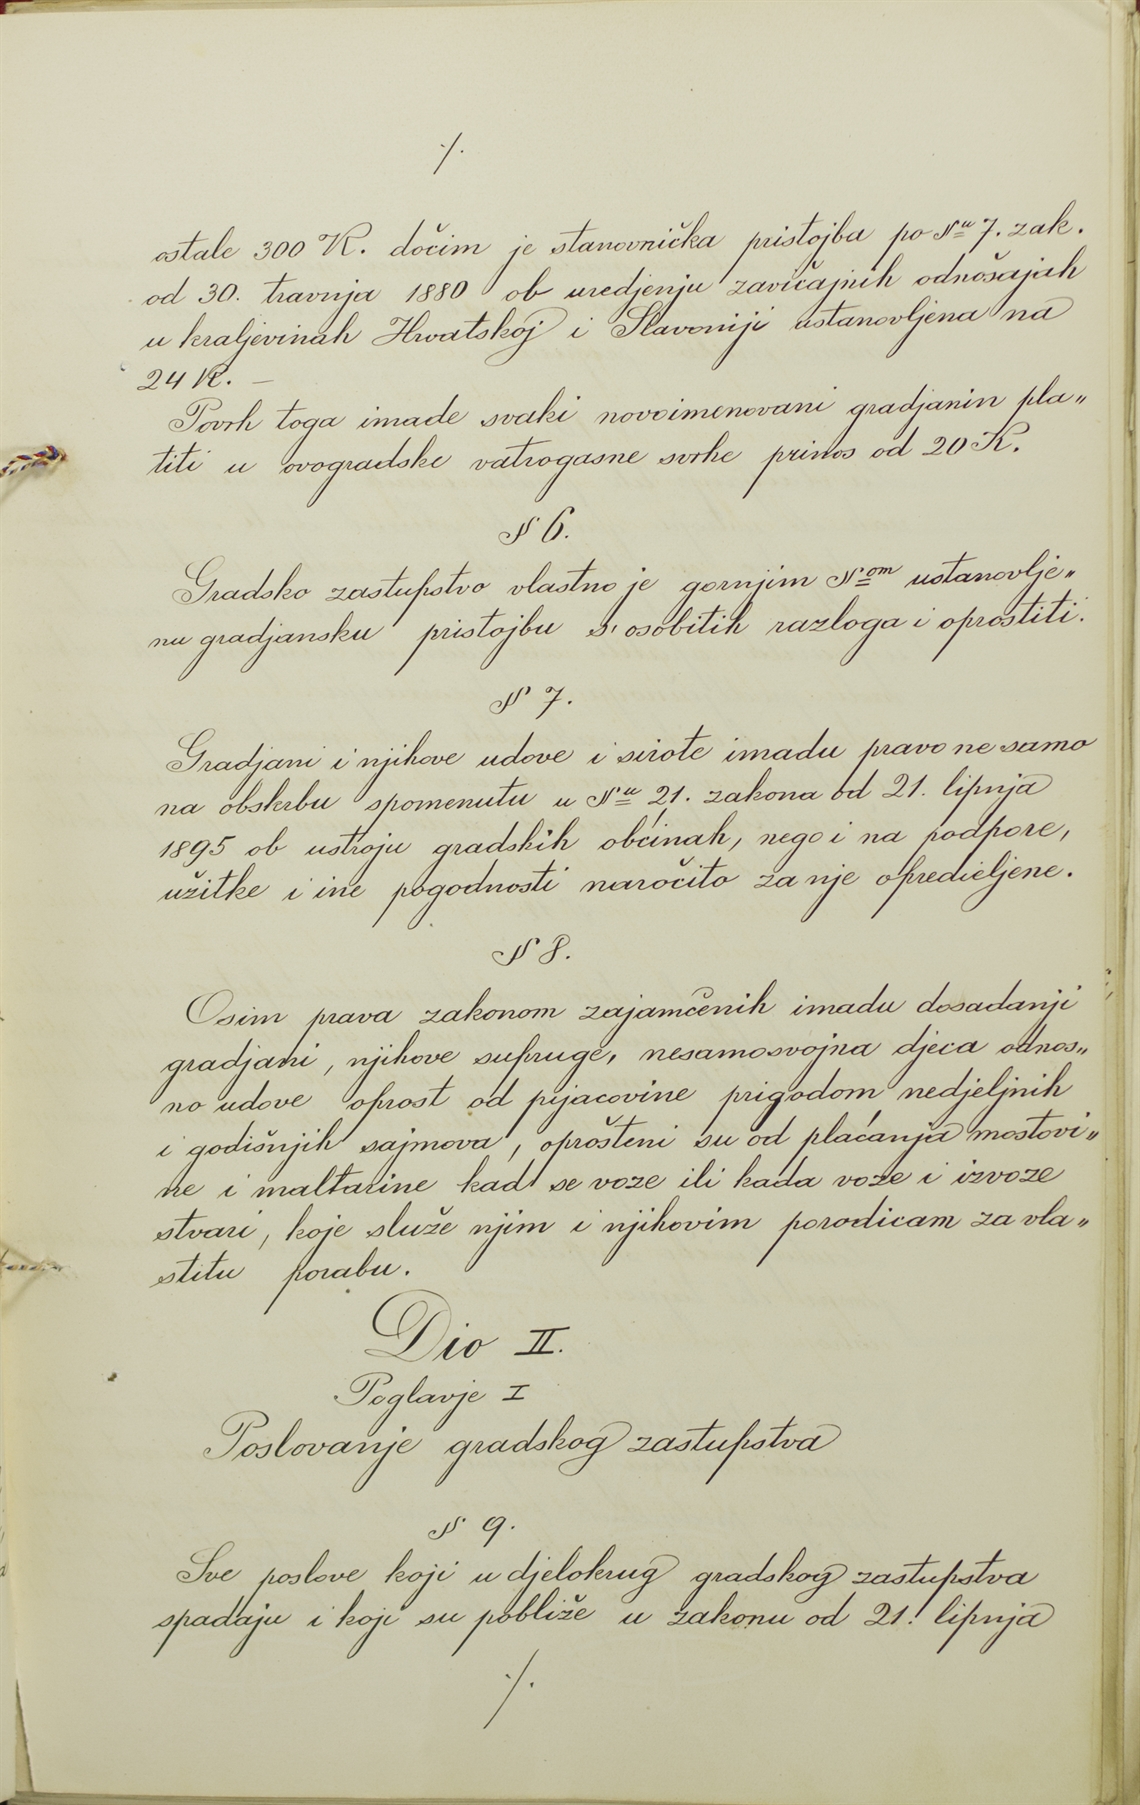 ·/.
ostale 300 K. dočim je stanovnička pristojba po §u 7. zak.
od 30. travnja 1880 ob uredjenju zavičajnih odnošajah
u kraljevinah Hrvatskoj i Slavoniji ustanovljena na
24 K. –
Povrh toga imade svaki novoimenovani gradjanin pla„
titi u ovogradske vatrogasne svrhe prinos od 20 K.
§ 6.
Gradsko zastupstvo vlastno je gornjim §om ustanovlje„
nu gradjansku pristojbu s' osobitih razloga i oprostiti.
§ 7.
Gradjani i njihove udove i sirote imadu pravo ne samo
na obskrbu spomenutu u §u 21. zakona od 21. lipnja
1895 ob ustroju gradskih obćinah, nego i na podpore,
užitke i ine pogodnosti naročito za nje opredieljene.
§ 8.
Osim prava zakonom zajamčenih imadu dosadanji
gradjani, njihove supruge, nesamosvojna djeca odnos„
no udove oprost od pijacovine prigodom nedjeljnih
i godišnjih sajmova, oprošteni su od plaćanja mostovi„
ne i maltarine kad se voze ili kada voze i izvoze
stvari, koje služe njim i njihovim porodicam za vla„
stitu porabu.
Dio II.
Poglavje I
Poslovanje gradskog zastupstva
§ 9.
Sve poslove koji u djelokrug gradskog zastupstva
spadaju i koji su pobliže u zakonu od 21. lipnja
·/.